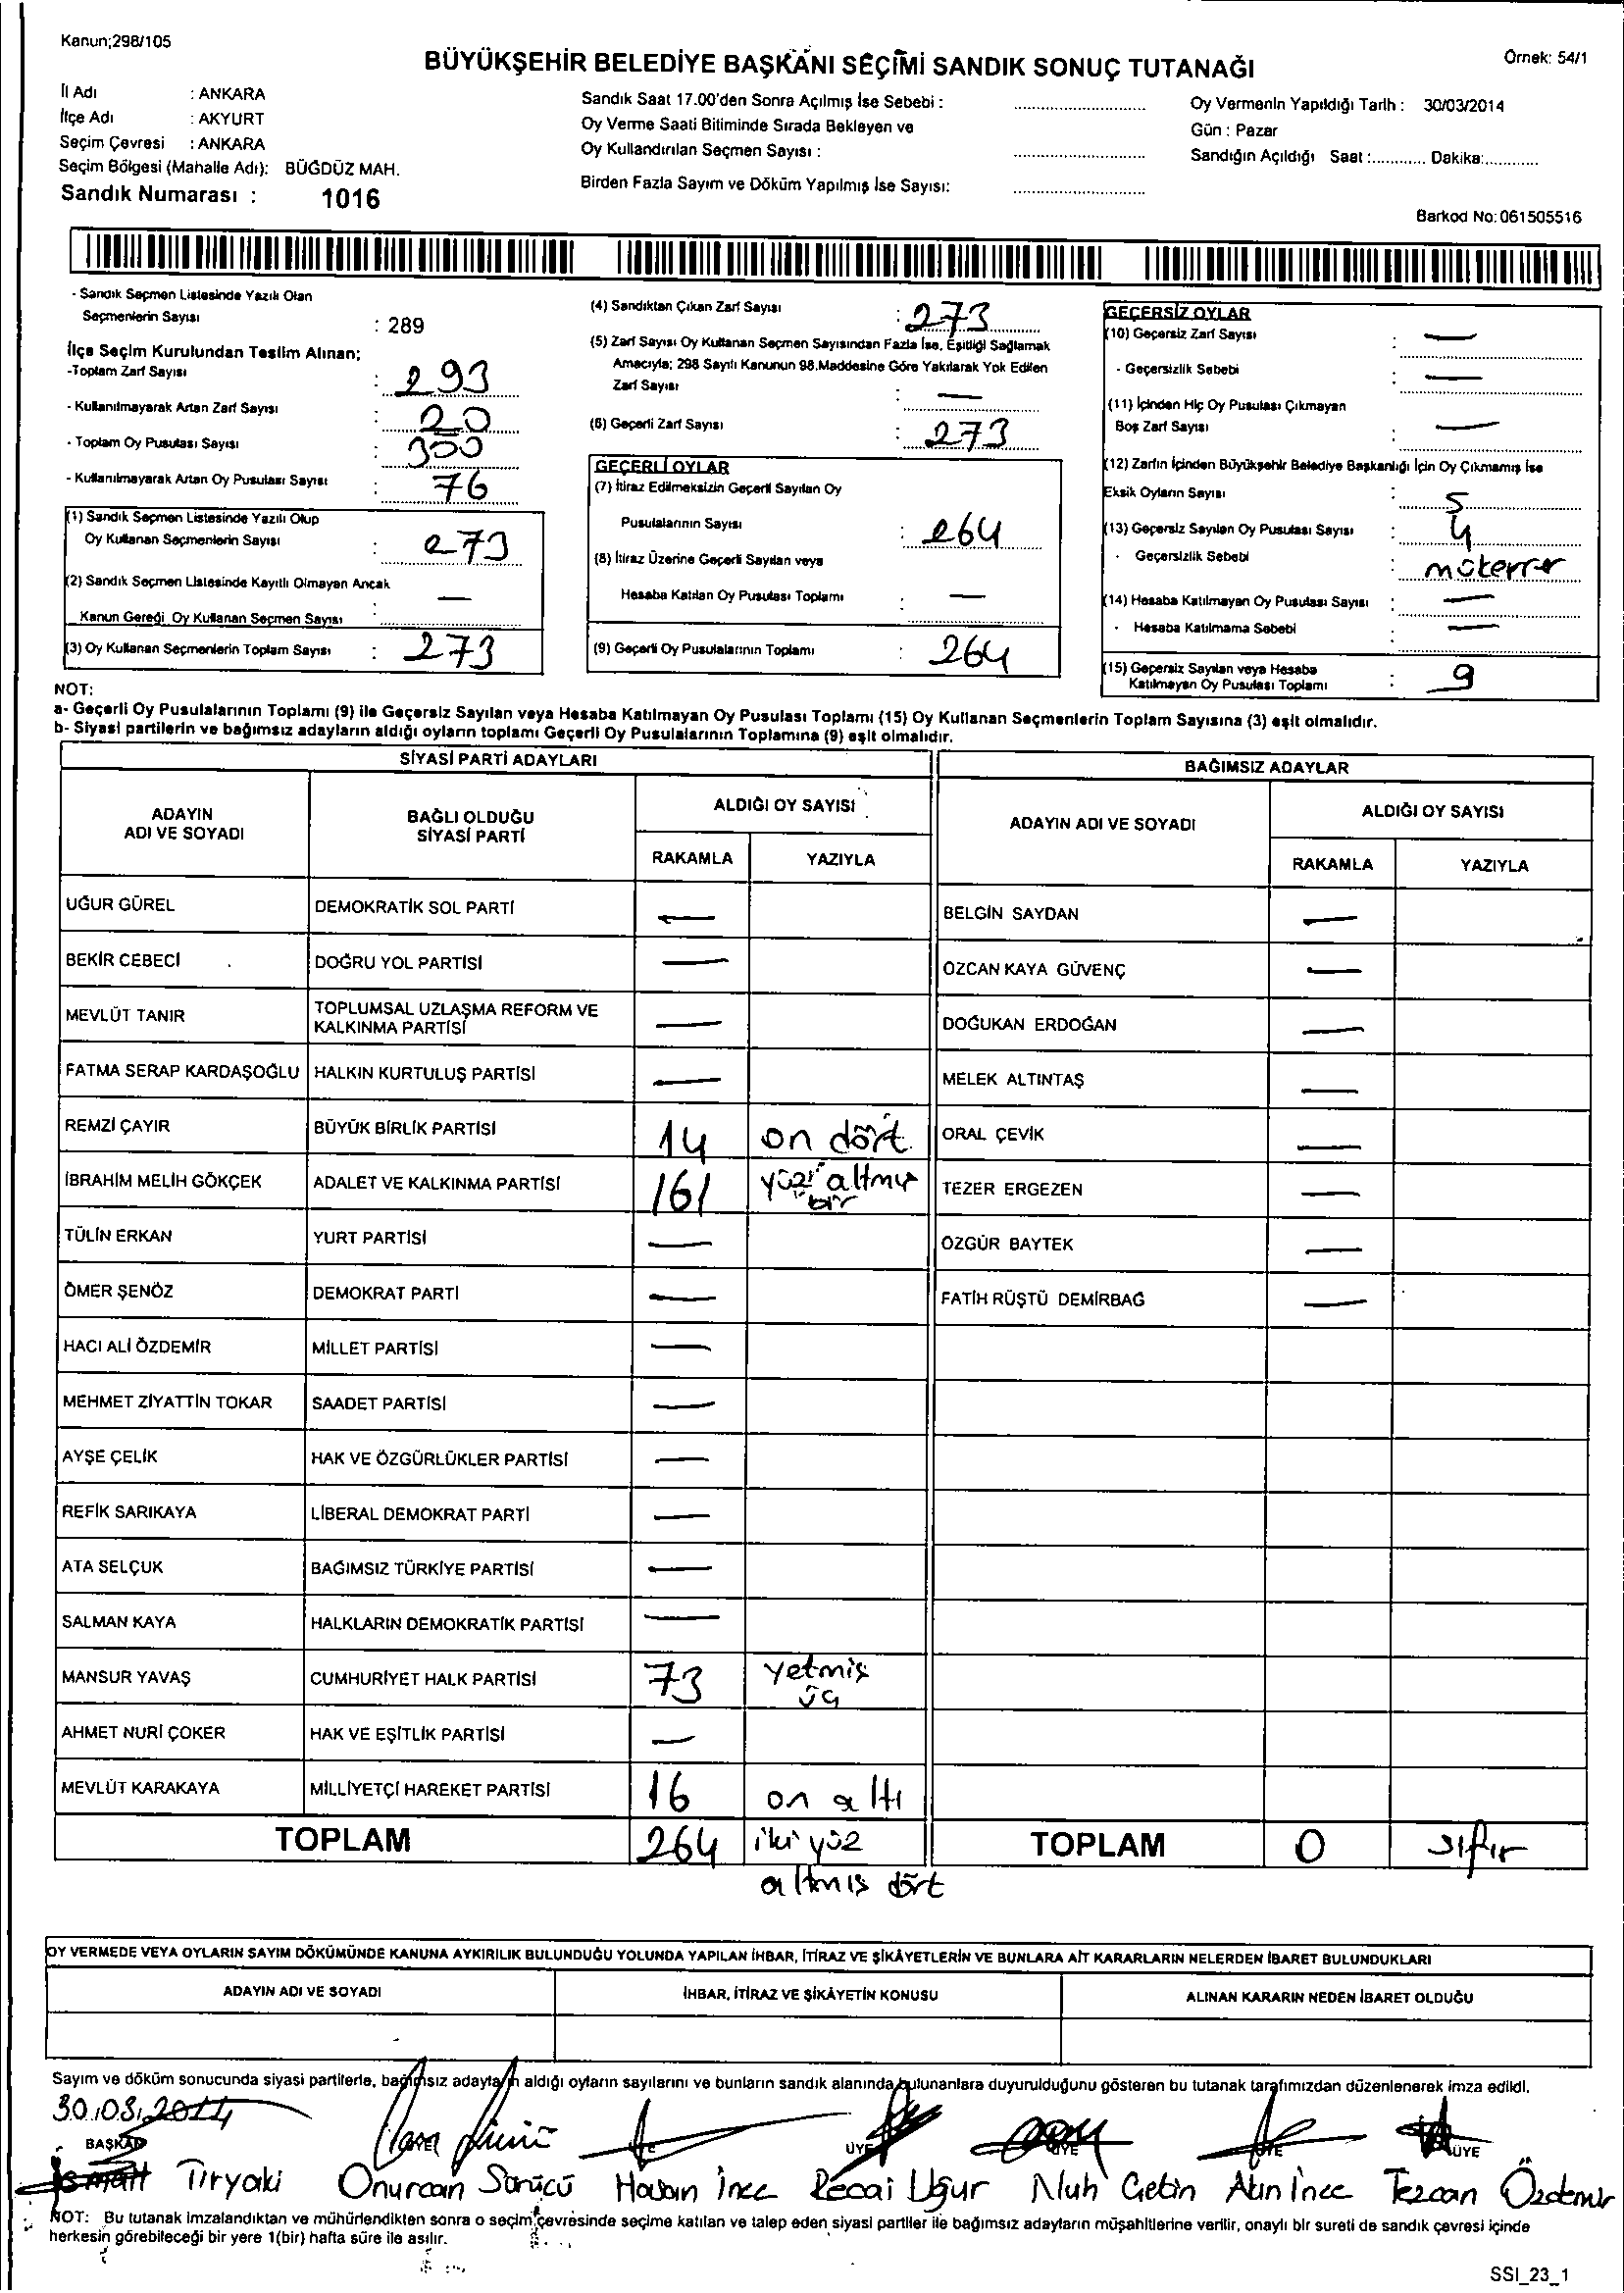 Kanun;298/105
BÜYÜKŞEHİR BELEDİYE BAŞKANI SEÇİMİ SANDIK SONUÇ TUTANAĞI
Örnek: 54/1
İl Adı : ANKARA
İlçe Adı : AKYURT
Seçim Çevresi : ANKARA
Seçim Bölgesi (Mahalle Adı): BÜĞDÜZ MAH.
Sandık Numarası : 1016
Sandık Saat 17.00'den Sonra Açılmış İse Sebebi :
Oy Verme Saati Bitiminde Sırada Bekleyen ve
Oy Kullandırılan Seçmen Sayısı :
Birden Fazla Sayım ve Döküm Yapılmış İse Sayısı:
Oy Vermenin Yapıldığı Tarih : 30/03/2014
Gün : Pazar
Sandığın Açıldığı Saat :............ Dakika:............
Barkod No: 061505516
- Sandık Seçmen Listesinde Yazılı Olan
Seçmenlerin Sayısı : 289
İlçe Seçim Kurulundan Teslim Alınan;
-Toplam Zarf Sayısı : 293
- Kullanılmayarak Artan Zarf Sayısı : 20
- Toplam Oy Pusulası Sayısı : 350
- Kullanılmayarak Artan Oy Pusulası Sayısı : 76
(1) Sandık Seçmen Listesinde Yazılı Olup
Oy Kullanan Seçmenlerin Sayısı : 273
(2) Sandık Seçmen Listesinde Kayıtlı Olmayan Ancak
Kanun Gereği Oy Kullanan Seçmen Sayısı : —
(3) Oy Kullanan Seçmenlerin Toplam Sayısı : 273
(4) Sandıktan Çıkan Zarf Sayısı : 273
(5) Zarf Sayısı Oy Kullanan Seçmen Sayısından Fazla İse, Eşitliği Sağlamak
Amacıyla; 298 Sayılı Kanunun 98.Maddesine Göre Yakılarak Yok Edilen
Zarf Sayısı : —
(6) Geçerli Zarf Sayısı : 273
GEÇERLİ OYLAR
(7) İtiraz Edilmeksizin Geçerli Sayılan Oy
Pusulalarının Sayısı : 264
(8) İtiraz Üzerine Geçerli Sayılan veya
Hesaba Katılan Oy Pusulası Toplamı : —
(9) Geçerli Oy Pusulalarının Toplamı : 264
GEÇERSİZ OYLAR
(10) Geçersiz Zarf Sayısı : —
- Geçersizlik Sebebi : —
(11) İçinden Hiç Oy Pusulası Çıkmayan
Boş Zarf Sayısı : —
(12) Zarfın İçinden Büyükşehir Belediye Başkanlığı İçin Oy Çıkmamış İse
Eksik Oyların Sayısı : 5
(13) Geçersiz Sayılan Oy Pusulası Sayısı : 4
- Geçersizlik Sebebi : mükerrer
(14) Hesaba Katılmayan Oy Pusulası Sayısı : —
- Hesaba Katılmama Sebebi : —
(15) Geçersiz Sayılan veya Hesaba
Katılmayan Oy Pusulası Toplamı : 9
NOT:
a- Geçerli Oy Pusulalarının Toplamı (9) ile Geçersiz Sayılan veya Hesaba Katılmayan Oy Pusulası Toplamı (15) Oy Kullanan Seçmenlerin Toplam Sayısına (3) eşit olmalıdır.
b- Siyasi partilerin ve bağımsız adayların aldığı oyların toplamı Geçerli Oy Pusulalarının Toplamına (9) eşit olmalıdır.
SİYASİ PARTİ ADAYLARI
ADAYIN ADI VE SOYADI
BAĞLI OLDUĞU SİYASİ PARTİ
ALDIĞI OY SAYISI
RAKAMLA YAZIYLA
UĞUR GÜREL DEMOKRATİK SOL PARTİ —
BEKİR CEBECİ DOĞRU YOL PARTİSİ —
MEVLÜT TANIR TOPLUMSAL UZLAŞMA REFORM VE KALKINMA PARTİSİ —
FATMA SERAP KARDAŞOĞLU HALKIN KURTULUŞ PARTİSİ —
REMZİ ÇAYIR BÜYÜK BİRLİK PARTİSİ 14 on dört
İBRAHİM MELİH GÖKÇEK ADALET VE KALKINMA PARTİSİ 161 yüz altmış bir
TÜLİN ERKAN YURT PARTİSİ —
ÖMER ŞENÖZ DEMOKRAT PARTİ —
HACI ALİ ÖZDEMİR MİLLET PARTİSİ —
MEHMET ZİYATTİN TOKAR SAADET PARTİSİ —
AYŞE ÇELİK HAK VE ÖZGÜRLÜKLER PARTİSİ —
REFİK SARIKAYA LİBERAL DEMOKRAT PARTİ —
ATA SELÇUK BAĞIMSIZ TÜRKİYE PARTİSİ —
SALMAN KAYA HALKLARIN DEMOKRATİK PARTİSİ —
MANSUR YAVAŞ CUMHURİYET HALK PARTİSİ 73 yetmiş üç
AHMET NURİ ÇOKER HAK VE EŞİTLİK PARTİSİ —
MEVLÜT KARAKAYA MİLLİYETÇİ HAREKET PARTİSİ 16 on altı
TOPLAM 264 iki yüz altmış dört
BAĞIMSIZ ADAYLAR
ADAYIN ADI VE SOYADI
ALDIĞI OY SAYISI
RAKAMLA YAZIYLA
BELGİN SAYDAN —
ÖZCAN KAYA GÜVENÇ —
DOĞUKAN ERDOĞAN —
MELEK ALTINTAŞ —
ORAL ÇEVİK —
TEZER ERGEZEN —
ÖZGÜR BAYTEK —
FATİH RÜŞTÜ DEMİRBAĞ —
TOPLAM 0 sıfır
OY VERMEDE VEYA OYLARIN SAYIM DÖKÜMÜNDE KANUNA AYKIRILIK BULUNDUĞU YOLUNDA YAPILAN İHBAR, İTİRAZ VE ŞİKÂYETLERİN VE BUNLARA AİT KARARLARIN NELERDEN İBARET BULUNDUKLARI
ADAYIN ADI VE SOYADI İHBAR, İTİRAZ VE ŞİKÂYETİN KONUSU ALINAN KARARIN NEDEN İBARET OLDUĞU
Sayım ve döküm sonucunda siyasi partilerle, bağımsız adayların aldığı oyların sayılarını ve bunların sandık alanında bulunanlara duyurulduğunu gösteren bu tutanak tarafımızdan düzenlenerek imza edildi.
30.03.2014
BAŞKAN ÜYE ÜYE ÜYE ÜYE ÜYE ÜYE
İsmail Tiryaki Onurcan Sürücü Hasan İnce Recai Uğur Nuh Çetin Akın İnce Tezcan Özdemir
NOT: Bu tutanak imzalandıktan ve mühürlendikten sonra o seçim çevresinde seçime katılan ve talep eden siyasi partiler ile bağımsız adayların müşahitlerine verilir, onaylı bir sureti de sandık çevresi içinde
herkesin görebileceği bir yere 1(bir) hafta süre ile asılır.
SSI_23_1